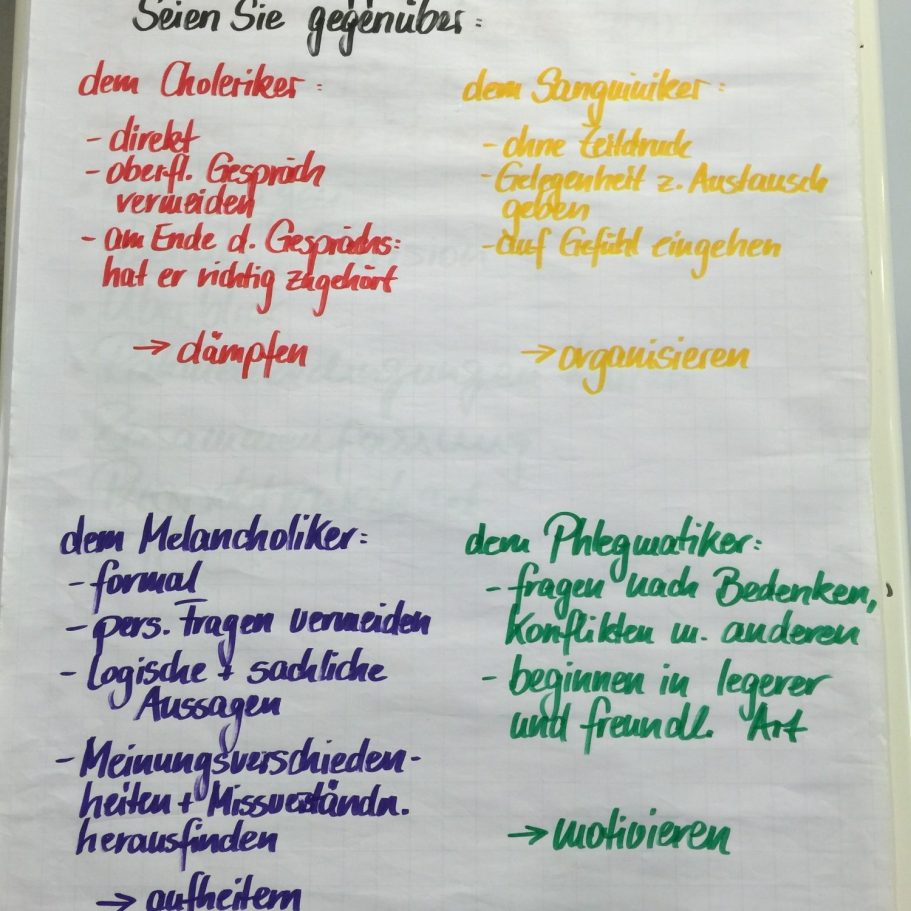 Seien Sie gegenüber:
dem Choleriker:
- direkt
- oberfl. Gespräch
vermeiden
- am Ende d. Gesprächs:
hat er richtig zugehört
→ dämpfen
dem Sanguiniker:
- ohne Zeitdruck
- Gelegenheit z. Austausch
geben
- auf Gefühl eingehen
→ organisieren
dem Melancholiker:
- formal
- pers. Fragen vermeiden
- Logische + sachliche
Aussagen
- Meinungsverschieden-
heiten + Missverständn.
herausfinden
→ aufheitern
dem Phlegmatiker:
- fragen nach Bedenken,
Konflikten m. anderen
- beginnen in legerer
und freundl. Art
→ motivieren